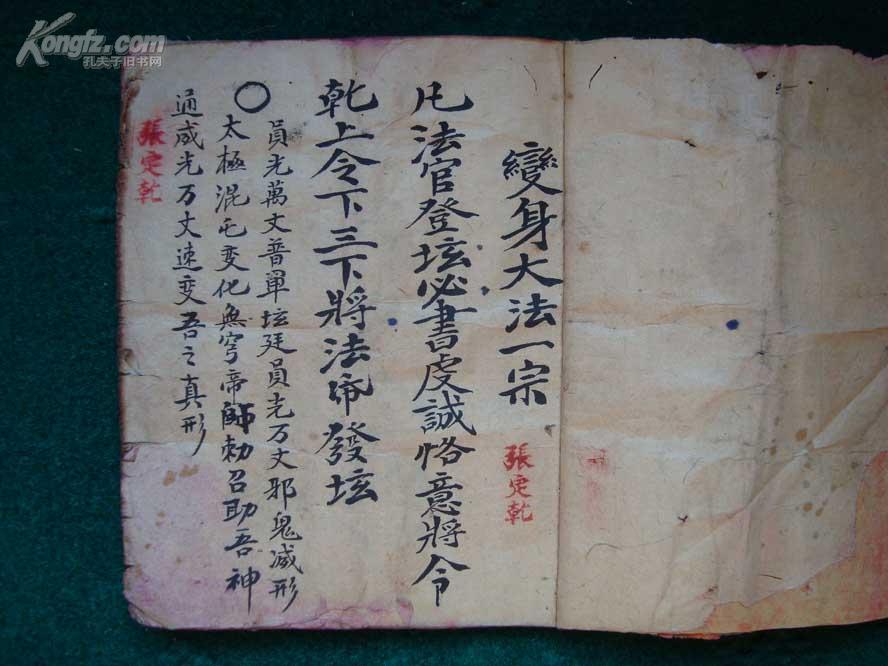 Kongfz.com
孔夫子旧书网
變身大法一宗
張定乾
凡法官登坛必書虔誠恪意將令
乾上令下三下將法帝發坛
員光萬丈普單坛廷員光万丈邪鬼减形
〇太極混屯变化無穹帝師勅召助吾神
通咸光万丈速变吾之真形
張定乾